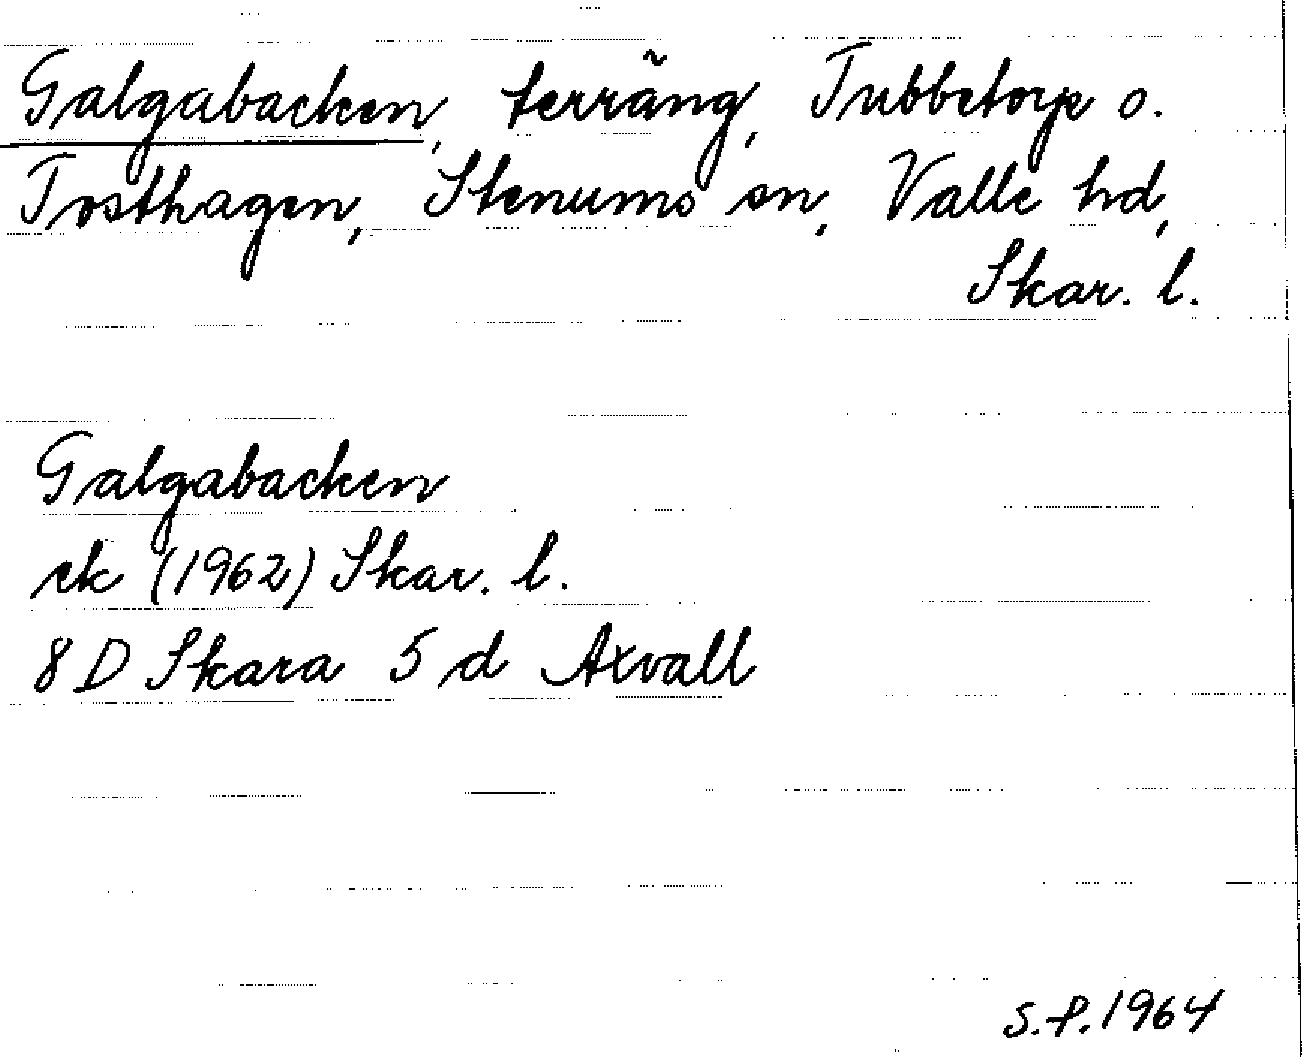 Galgabacken, terräng, Tubbetorp o.
Tosthagen, Stenums sn, Valle hd,
Skar. l.
Galgabacken
ek (1962) Skar. l.
8 D Skara 5 d Axvall
S.P. 1964